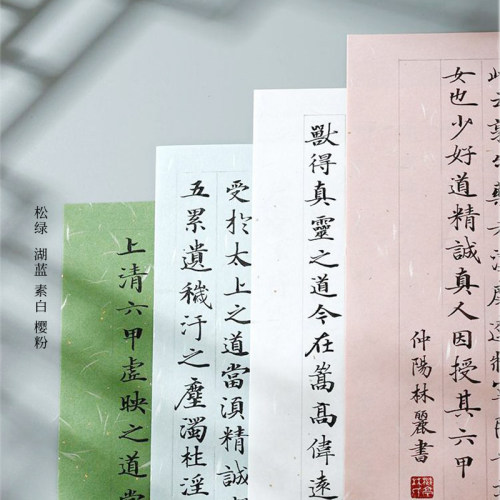 女也少好道精誠真人因授其六甲
仲陽林麗書
獸得真靈之道今在嵩高偉遠
受於太上之道當湏精誠
五累遺穢汙之塵濁杜淫
上清六甲虛映之道當
松绿 湖蓝 素白 樱粉